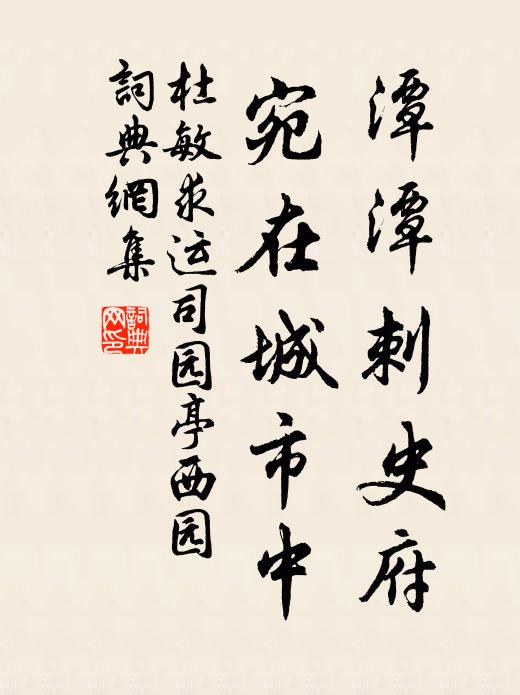 潭潭刺史府
宛在城市中
杜敏求运司园亭西园
詞典網集
詞典网印